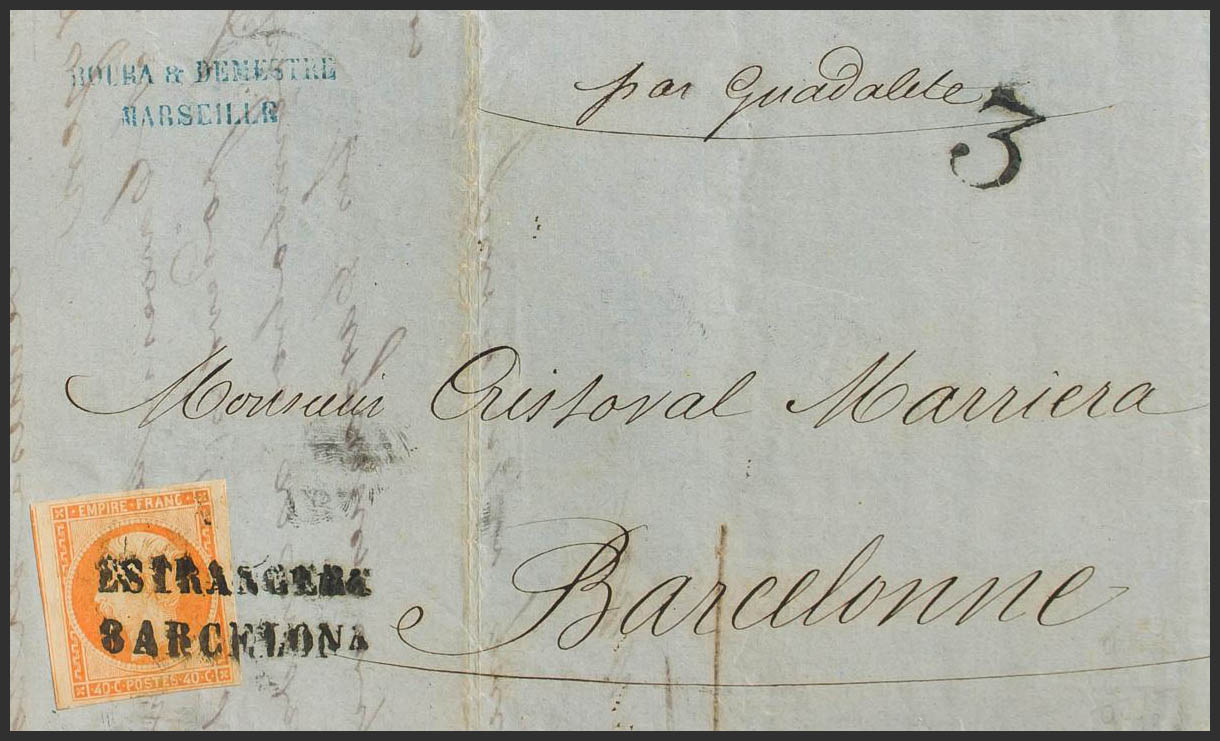 & DEMESTRE
MARSEILLE
par Guadalete
3
Monsieur Cristoval Marriera
Barcelonne
EMPIRE FRANC
ESTRANGERO
BARCELONA
40·C·POSTES·40·C